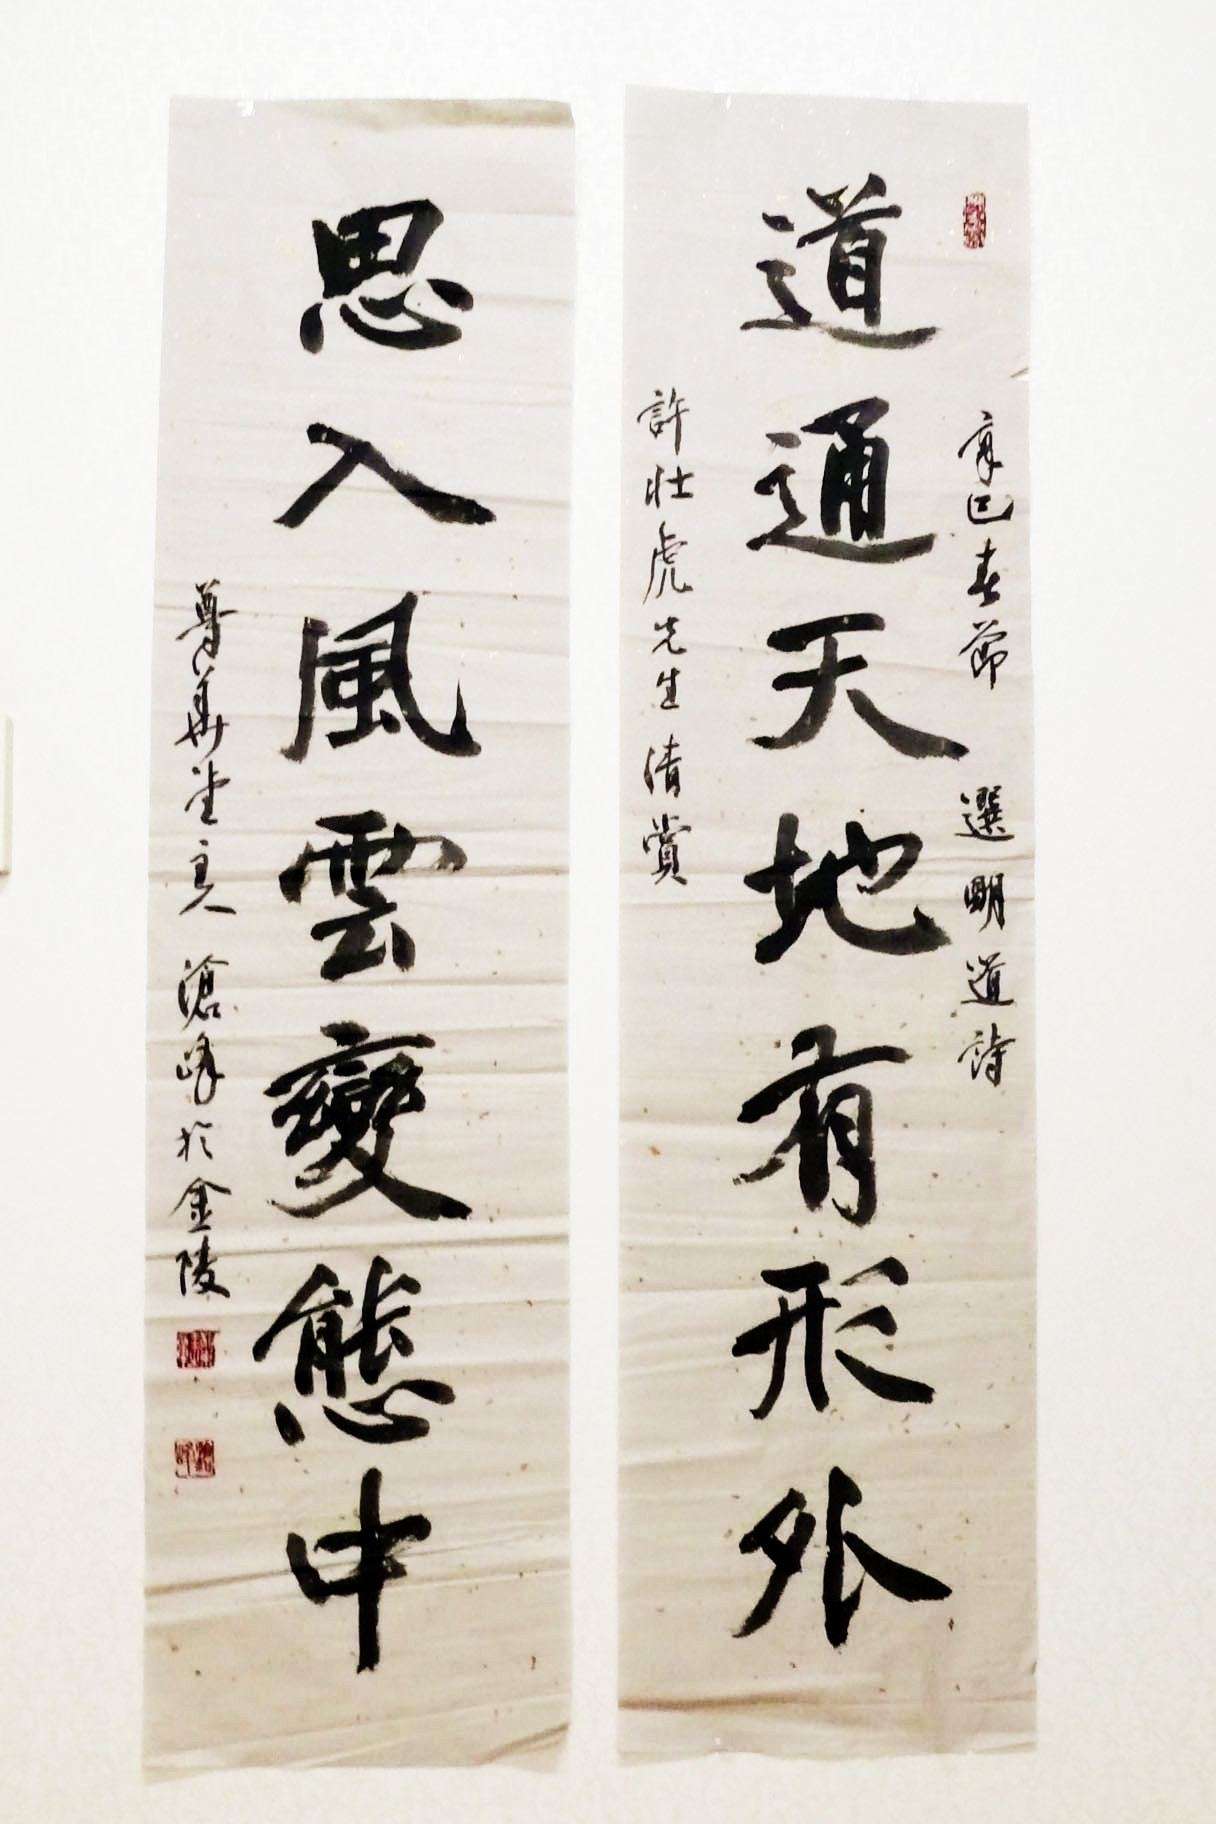 道通天地有形外
辛巳春節 選明道詩
許壯虎先生清賞
思入風雲變態中
尊華堂主人 滄峰於金陵